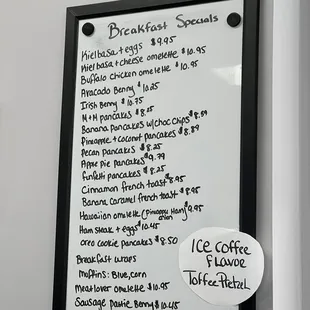 Breakfast Specials
Kielbasa + eggs $9.95
Kielbasa + cheese omelette $10.95
Buffalo chicken omelette $10.95
Avocado Benny $10.25
Irish Benny $10.75
M+M pancakes $8.25
Banana pancakes w/choc chips $8.59
Pineapple + coconut pancakes $8.89
Pecan pancakes $8.25
Apple Pie pancakes $9.79
Funfetti pancakes $8.25
Cinnamon french toast $8.95
Banana Caramel french toast $8.95
Hawaiian omelette (Pineapple Ham) $10.95
Ham steak + eggs $10.45
Oreo cookie pancakes $8.50
Breakfast wraps
Muffins: Blue, corn
Meatlover omelette $10.95
Sausage pattie Benny $10.45
ICE coffee
FLavor
Toffee-Pretzel